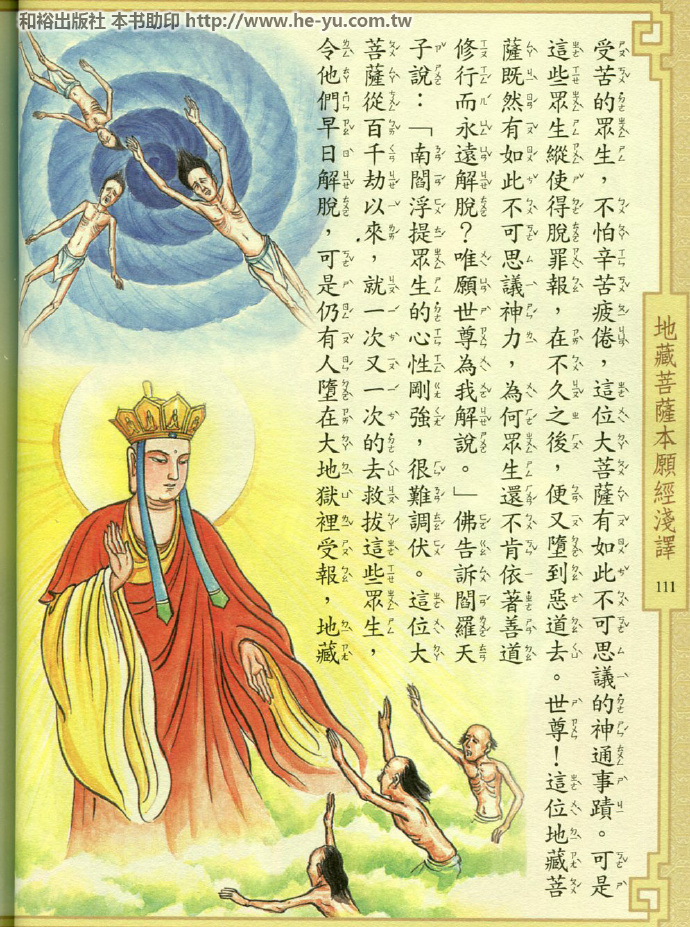 和裕出版社 本书助印 http://www.he-yu.com.tw
受苦的眾生，不怕辛苦疲倦，這位大菩薩有如此不可思議的神通事蹟。可是
這些眾生縱使得脫罪報，在不久之後，便又墮到惡道去。世尊！這位地藏菩
薩既然有如此不可思議神力，為何眾生還不肯依著善道
修行而永遠解脫？唯願世尊為我解說。」佛告訴閻羅天
子說：「南閻浮提眾生的心性剛強，很難調伏。這位大
菩薩從百千劫以來，就一次又一次的去救拔這些眾生，
令他們早日解脫，可是仍有人墮在大地獄裡受報，地藏
地藏菩薩本願經淺譯
111